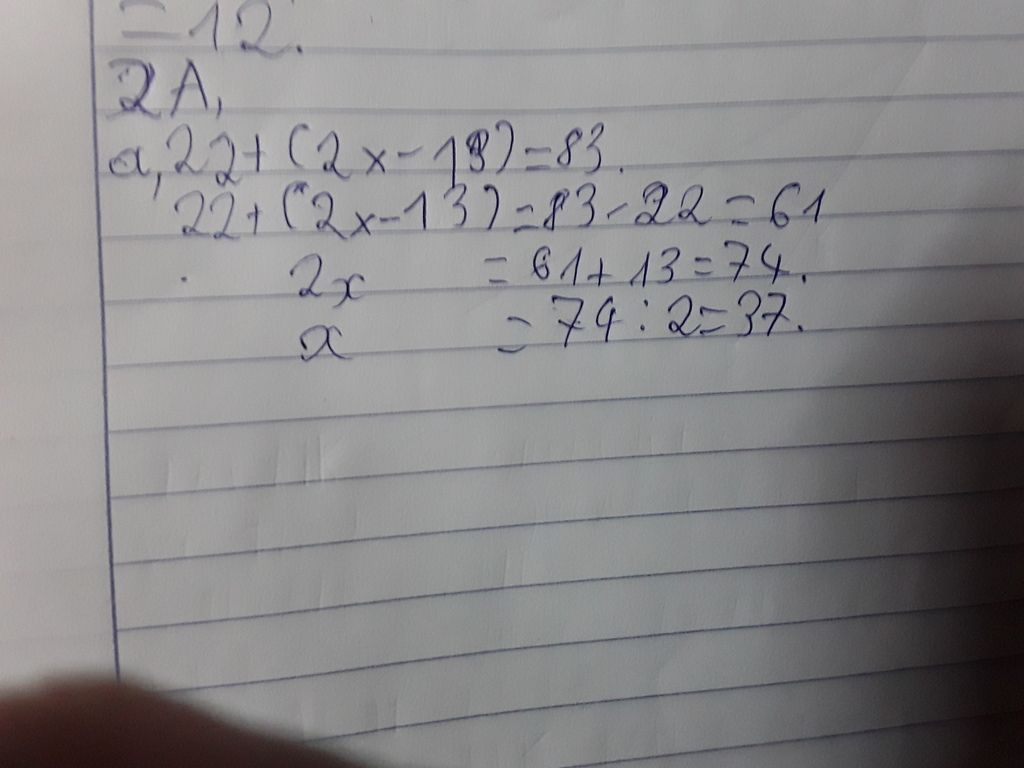 = 12.
2A,
a, 22 + (2x - 13) = 83.
22 + (2x - 13) = 83 - 22 = 61
2x = 61 + 13 = 74.
x = 74 : 2 = 37.